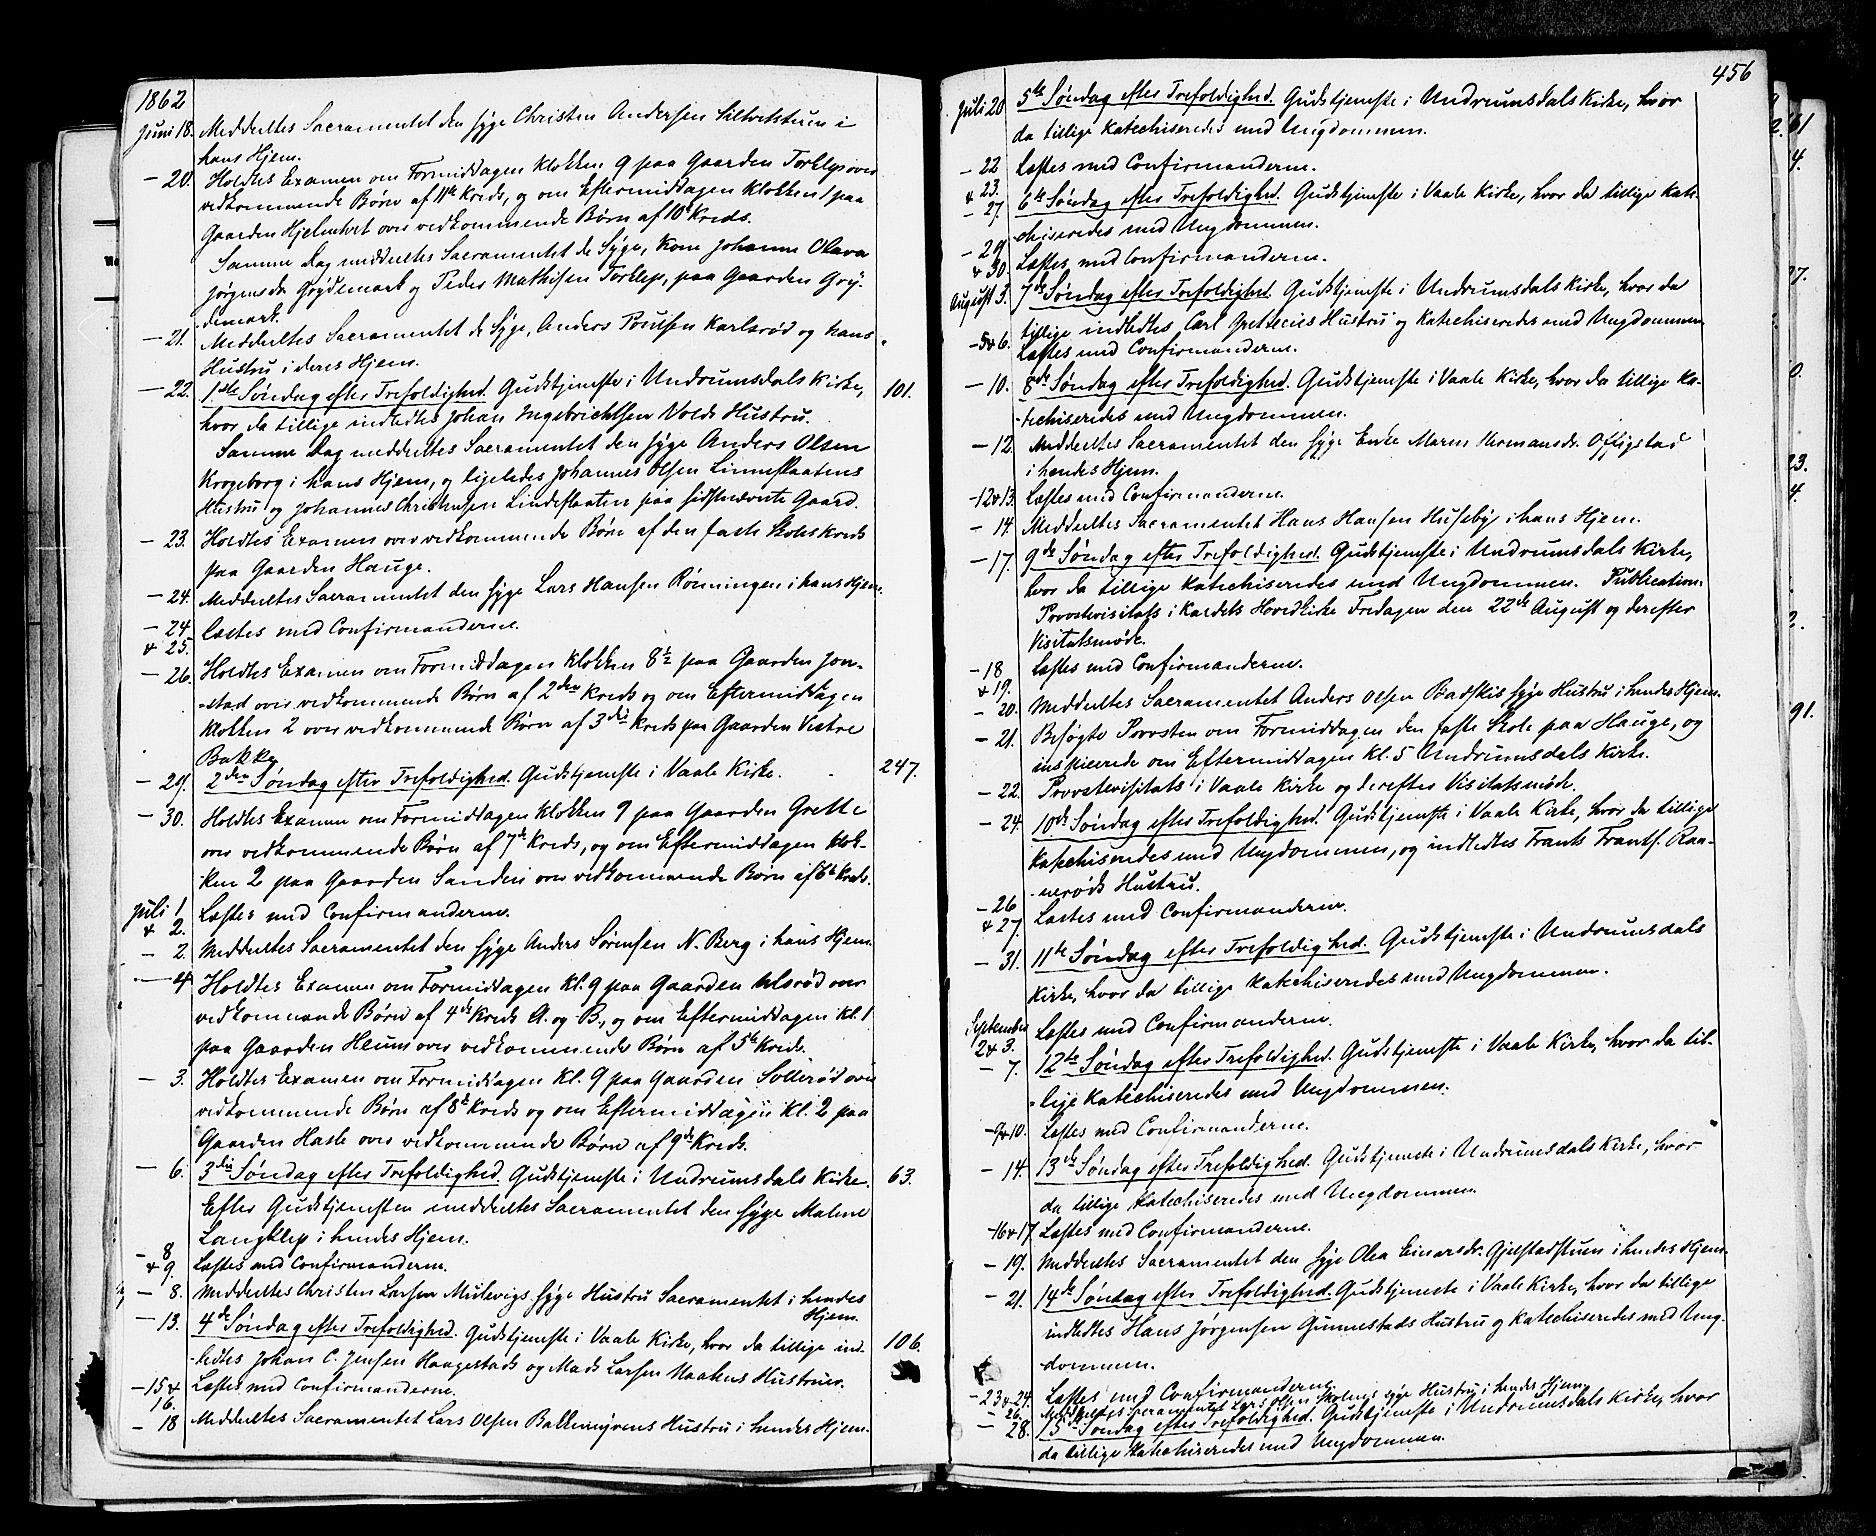 1862
Juni 18. Meddeeltes Sacramentet den syge Christen Andersen i
hans Hjem.
— 20. Holdtes Examen om Formiddagen Klokken 9 paa Gaarden Torklep over
vedkommende Børn af 11te Kreds, og om Eftermiddagen Klokken 1 paa
Gaarden Hjelmtvet over vedkommende Børn af 10de Kreds.
Samme Dag meddeeltes Sacramentet de Syge, Kone Johanne Olava
Jørgensdr Grydemark og Peder Mathisen Torklep, paa Gaarden Gry-
demark.
— 21. Meddeeltes Sacramentet de Syge, Anders Poulsen Karlsrød og hans
Hustru i deres Hjem.
— 22. 1ste Søndag efter Trefoldighed. Gudstjeneste i Undrumsdals Kirke, 101.
hvor da tillige indledtes Johan Ingebrichtsen Volds Hustru.
Samme Dag meddeeltes Sacramentet den syge Anders Olsen
Krogeborg i hans Hjem, og ligeledes Johannes Olsen Lindeflaatens
Hustru og Johannes Christensen Lindeflaaten paa sidstnævnte Gaard.
— 23. Holdtes Examen over vedkommende Børn af den faste Skoles Kreds
paa Gaarden Hauge.
— 24. Meddeeltes Sacramentet den syge Lars Hansen Rønningen i hans Hjem.
— 24 Læstes med Confirmanderne.
& 25.
— 26. Holdtes Examen om Formiddagen Klokken 8½ paa Gaarden Jon-
-stad over vedkommende Børn af 2den Kreds og om Eftermiddagen
Klokken 2 over vedkommende Børn af 3die Kreds paa Gaarden Vestre
Bakke.
— 29. 2den Søndag efter Trefoldighed. Gudstjeneste i Vaale Kirke. 247.
— 30. Holdtes Examen om Formiddagen Klokken 9 paa Gaarden Grette
over vedkommende Børn af 7de Kreds, og om Eftermiddagen Klok-
ken 2 paa Gaarden Sanden over vedkommende Børn af 6te Kreds.
Juli 1 Læstes med Confirmanderne.
& 2.
— 2. Meddeeltes Sacramentet den syge Anders Sørensen N. Berg i hans Hjem.
— 4 Holdtes Examen om Formiddagen Kl. 9 paa Gaarden over
vedkommende Børn af 4de Kreds A. og B., og om Eftermiddagen Kl. 1
paa Gaarden Heum over vedkommende Børn af 5te Kreds.
— 3. Holdtes Examen om Formiddagen Kl. 9 paa Gaarden Sollerød over
vedkommende Børn af 8de Kreds og om Eftermiddagen Kl. 2 paa
Gaarden Hasle over vedkommende Børn af 9de Kreds.
— 6. 3die Søndag efter Trefoldighed. Gudstjeneste i Undrumsdals Kirke. 63.
Efter Gudstjenesten meddeeltes Sacramentet den syge Malene
Langklep i hendes Hjem.
— 8 Læstes med Confirmanderne.
& 9.
— 8. Meddeeltes Christen Larsen Mulevigs syge Hustru Sacramentet i hendes
Hjem.
— 13. 4de Søndag efter Trefoldighed. Gudstjeneste i Vaale Kirke, hvor da tillige ind- 106.
-ledtes Johan C. Jensen Haagestads og Mads Larsen Hustruer.
— 15 & Læstes med Confirmanderne.
16.
— 18 Meddeeltes Sacramentet Lars Olsen Bakkemyrens Hustru i hendes Hjem.
456
Juli 20 5te Søndag efter Trefoldighed. Gudstjeneste i Undrumsdals Kirke, hvor
da tillige Katechiseredes med Ungdommen.
— 22 Læstes med Confirmanderne.
& 23.
— 27. 6te Søndag efter Trefoldighed. Gudstjeneste i Vaale Kirke, hvor da tillige Kate-
chiseredes med Ungdommen.
— 29 Læstes med Confirmanderne.
& 30.
August 3. 7de Søndag efter Trefoldighed. Gudstjeneste i Undrumsdals Kirke, hvor da
tillige indledtes Carl Hustru og Katechiseredes med Ungdommen
— 5 & 6. Læstes med Confirmanderne.
— 10. 8de Søndag efter Trefoldighed. Gudstjeneste i Vaale Kirke, hvor da tillige Ka-
-techiseredes med Ungdommen.
— 12. Meddeeltes Sacramentet den syge Enke Maren Hermansdr. Offigstad
i hendes Hjem.
— 12 & 13. Læstes med Confirmanderne.
— 14. Meddeeltes Sacramentet Hans Hansen Huseby i hans Hjem.
— 17. 9de Søndag efter Trefoldighed. Gudstjeneste i Undrumsdals Kirke,
hvor da tillige Katechiseredes med Ungdommen. Publication:
Provstevisitats i Kaldets Hovedkirke Fredagen den 22de August og derefter
Visitatsmøde.
— 18 Læstes med Confirmanderne.
& 19.
— 20. Meddeeltes Sacramentet Anders Olsen syge Hustru i hendes Hjem.
— 21. Besøgte Provsten om Formiddagen den faste Skole paa Hauge, og
inspicerede om Eftermiddagen Kl. 5 Undrumsdals Kirke.
— 22. Provstevisitats i Vaale Kirke og derefter Visitatsmøde.
— 24. 10de Søndag efter Trefoldighed. Gudstjeneste i Vaale Kirke, hvor da tillige
Katechiseredes med Ungdommen, og indledtes Frants Frants. Raa-
-nerøds Hustru.
— 26 Læstes med Confirmanderne.
& 27.
— 31. 11te Søndag efter Trefoldighed. Gudstjeneste i Undrumsdals
Kirke, hvor da tillige Katechiseredes med Ungdommen.
September Læstes med Confirmanderne.
2 & 3.
— 7. 12te Søndag efter Trefoldighed. Gudstjeneste i Vaale Kirke, hvor da til-
-lige Katechiseredes med Ungdommen.
— 9 & 10. Læstes med Confirmanderne.
— 14. 13de Søndag efter Trefoldighed. Gudstjeneste i Undrumsdals Kirke, hvor
da tillige Katechiseredes med Ungdommen.
— 16 & 17 Læstes med Confirmanderne.
— 19. Meddeeltes Sacramentet den syge Olea Einarsdr. Gjelstadstuen i hendes Hjem.
— 21. 14de Søndag efter Trefoldighed. Gudstjeneste i Vaale Kirke, hvor da tillige
indledtes Hans Jørgensen Gunnestads Hustru og Katechiseredes med Ung-
dommen.
— 23 & 24. Læstes med Confirmanderne.
— 26. Meddeeltes Sacramentet Lars Olsen syge Hustru i hendes Hjem.
— 28. 15de Søndag efter Trefoldighed. Gudstjeneste i Undrumsdals Kirke, hvor
da tillige Katechiseredes med Ungdommen.